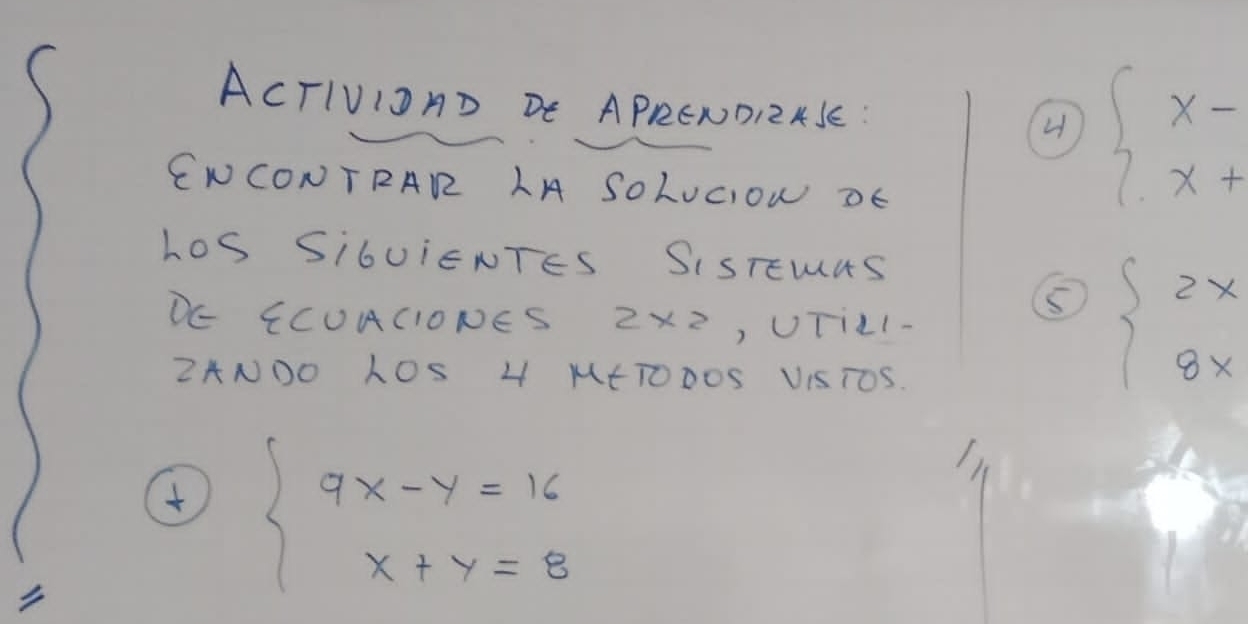 ACTIVIDAD DE APRENDIZAJE:
ENCONTRAR LA SOLUCION DE
LOS SIGUIENTES SISTEMAS
DE ECUACIONES 2x2, UTILI-
ZANDO LOS 4 METODOS VISTOS.
1 9x-y = 16
x + y = 8
4 x -
x +
5 2x
8x